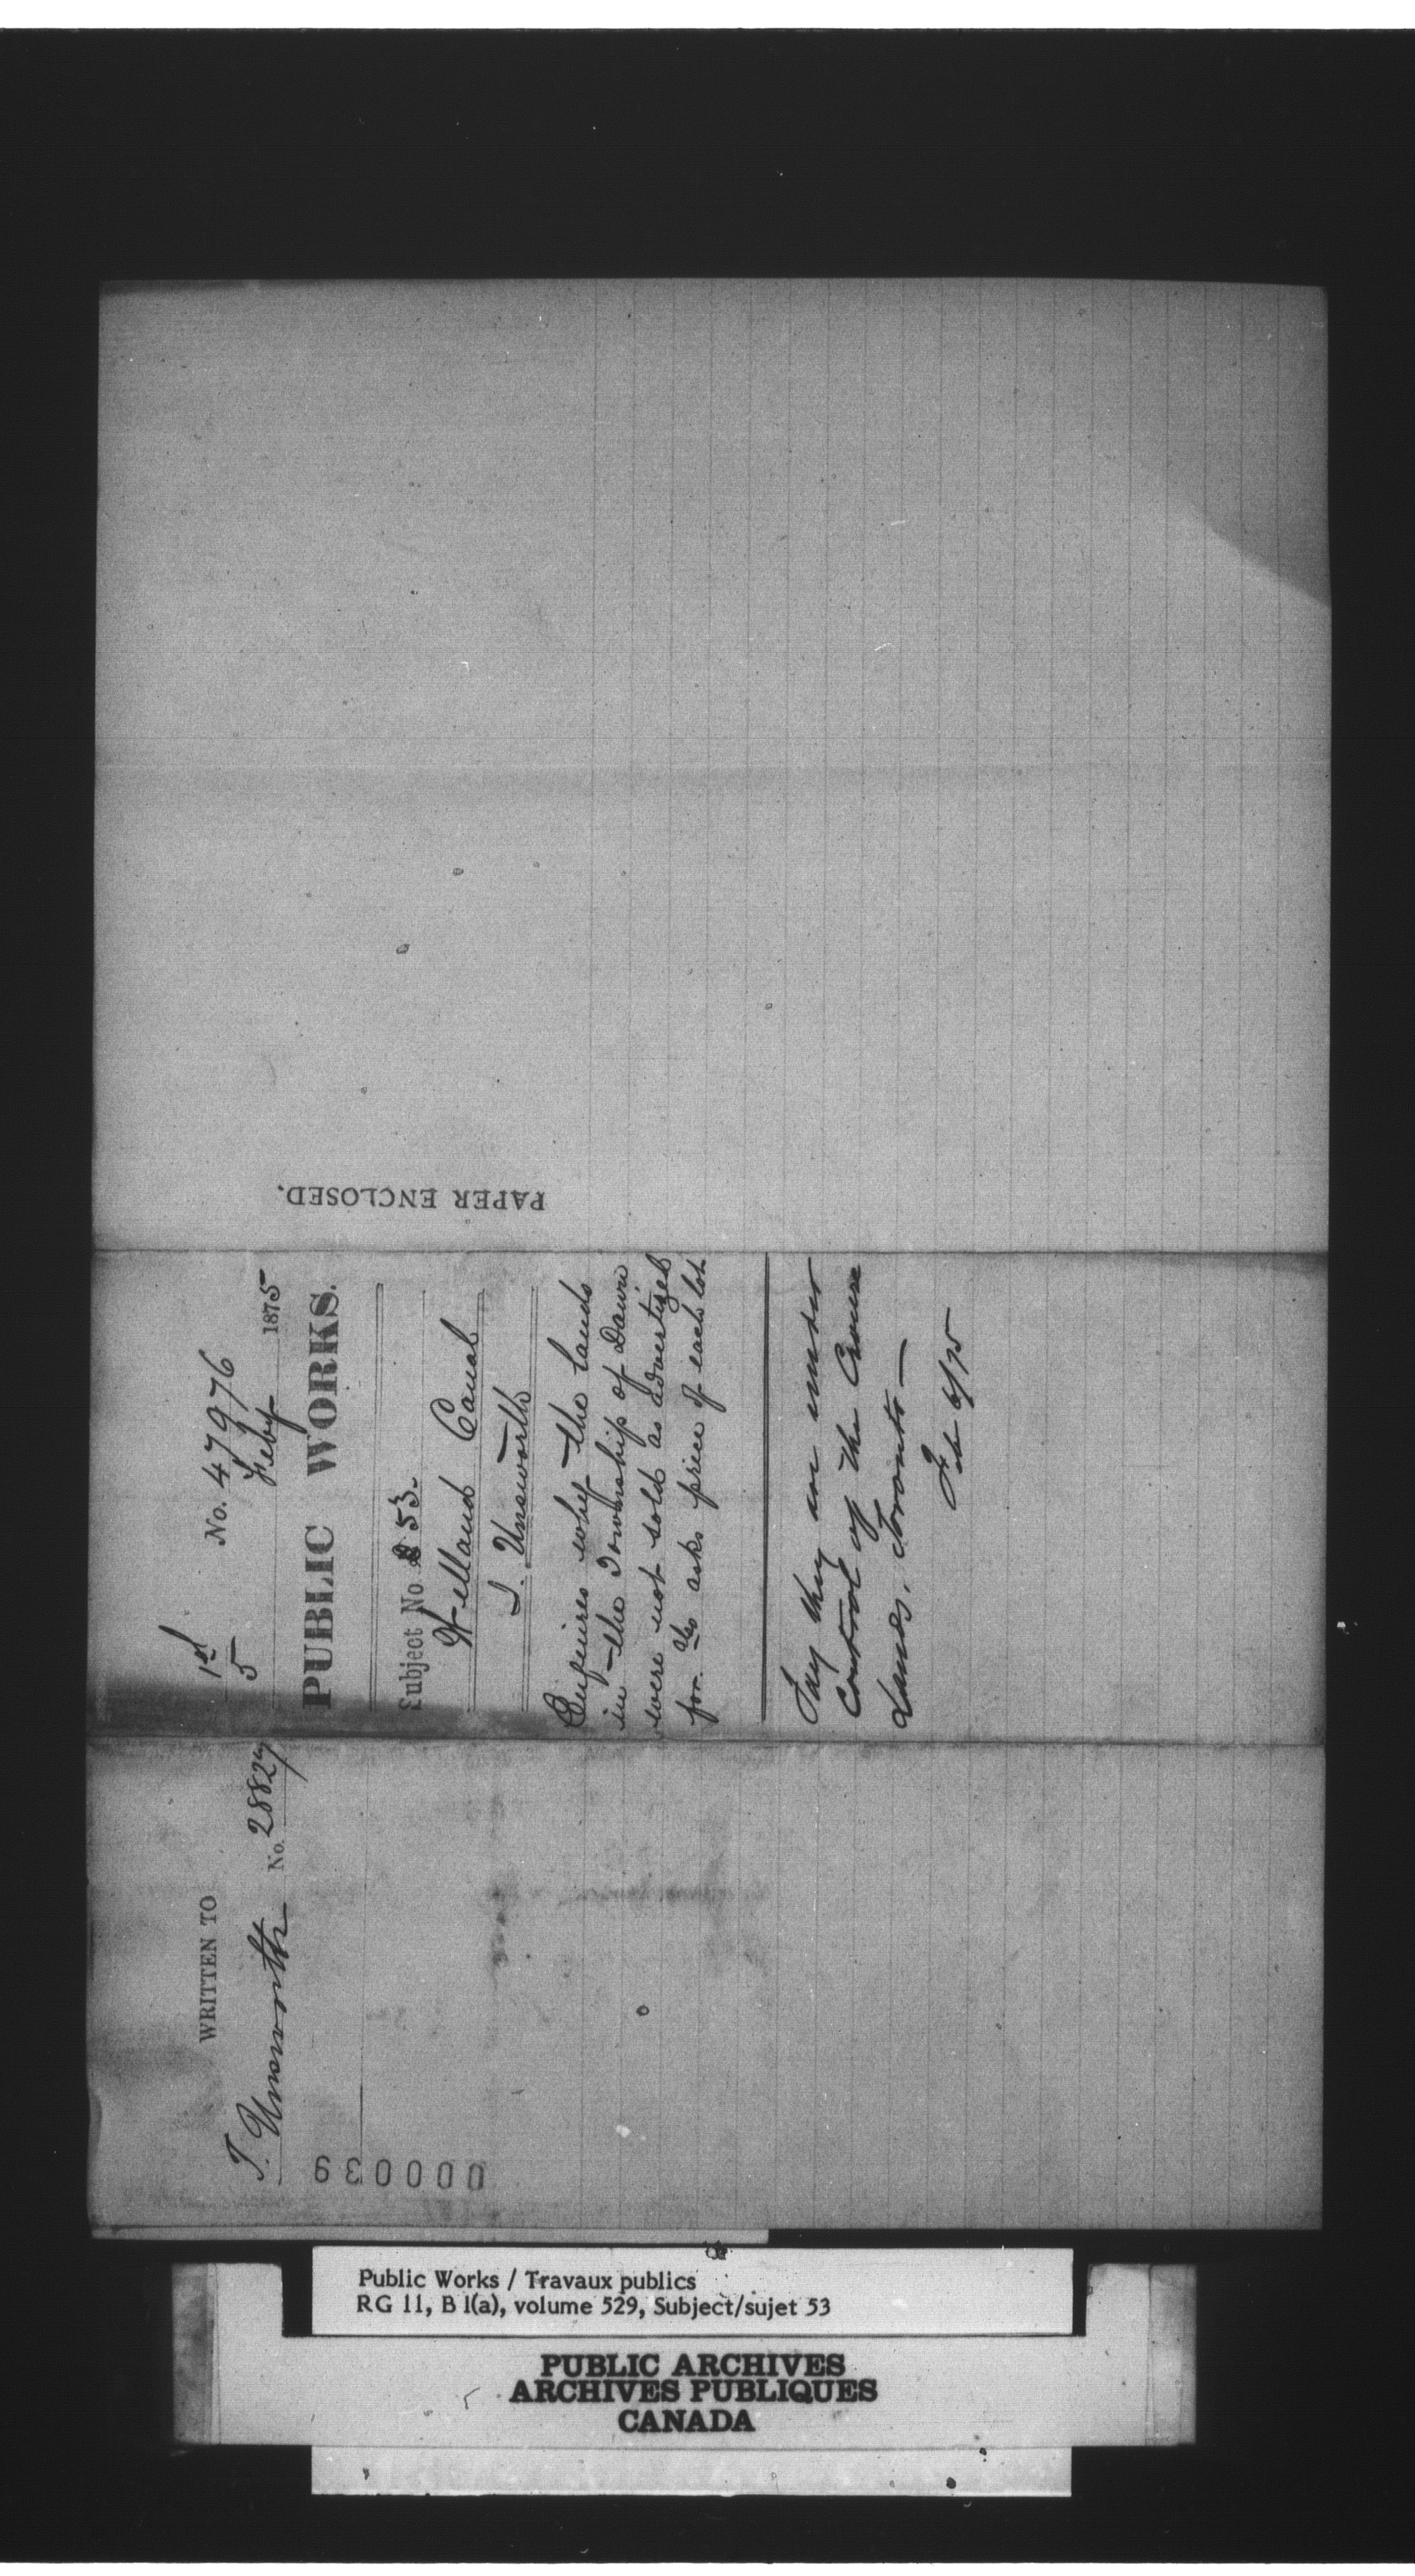 PAPER ENCLOSED.
1st
5
No. 47976
Feby 1875
PUBLIC WORKS.
Subject No 53.
Welland Canal
T. Unsworth
Enquires why the lands
in the Township of Dawn
were not sold as advertized
for. also asks price of each lot
Say they are under
control of the Crown
Lands, Toronto—
Feb 6/75
WRITTEN TO
T. Unsworth No. 28827
000039
Public Works / Travaux publics
RG 11, B 1(a), volume 529, Subject/sujet 53
PUBLIC ARCHIVES
ARCHIVES PUBLIQUES
CANADA